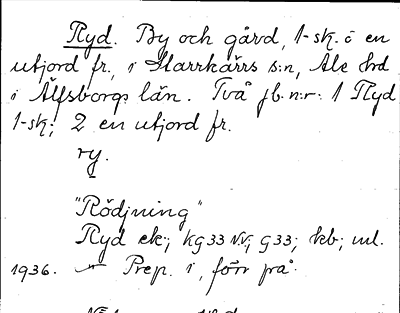 Ryd. By och gård, 1-sk. o en
utjord fr., i Starrkärrs s:n, Ale hd
i Älfsborgs län. Två jb.n:r: 1 Ryd
1-sk; 2 en utjord fr.
ry.
"Rödjning"
Ryd ek.; kg33 N.V.; g33; kb; ml.
1936. — Prep. i, förr på.